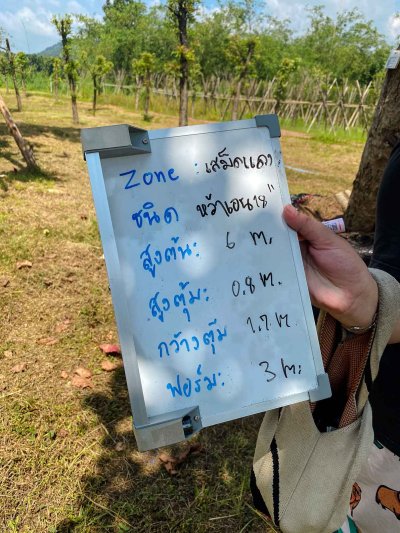 Zone : เสม็ดแดง
ชนิด หว้าเอน 18"
สูงต้น: 6 ม.
สูงตุ้ม: 0.8 ม.
กว้างตุ้ม 1.7 ม.
ฟอร์ม: 3 ม.